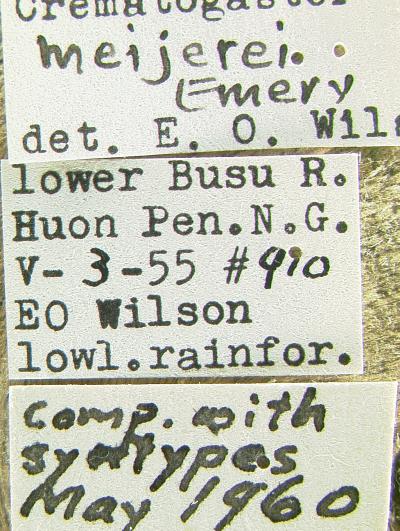 Crematogaster
meijerei.
Emery
det. E. O. Wils
lower Busu R.
Huon Pen.N.G.
V-3-55 #910
EO Wilson
lowl.rainfor.
comp. with
syntypes
May 1960